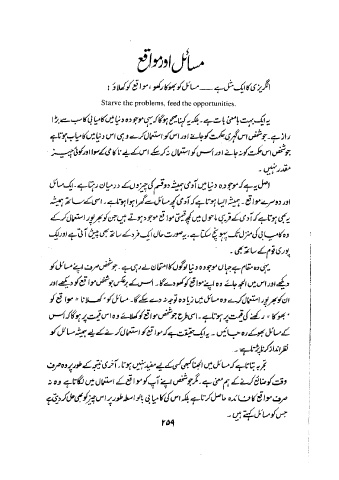 مسائل اور مواقع
انگریزی کا ایک مثل ہے ــــ مسائل کو بھوکا رکھو، مواقع کو کھلاؤ :
Starve the problems, feed the opportunities.
یہ ایک بہت بامعنی بات ہے۔ بلکہ یہ کہنا صحیح ہوگا کہ یہی موجودہ دنیا میں کامیابی کا سب سے بڑا
راز ہے۔ جو شخص اس گہری حکمت کو جانے اور اس کو استعمال کرے وہی اس دنیا میں کامیاب ہوتا ہے
جو شخص اس حکمت کو نہ جانے اور اس کو استعمال نہ کر سکے اس کے لیے ناکامی کے سوا اور کوئی چیز
مقدر نہیں۔
اصل یہ ہے کہ موجودہ دنیا میں آدمی ہمیشہ دو قسم کی چیزوں کے درمیان رہتا ہے۔ ایک مسائل
اور دوسرے مواقع۔ ہمیشہ ایسا ہوتا ہے کہ آدمی کچھ مسائل سے گھرا ہوا ہوتا ہے۔ اسی کے ساتھ ہمیشہ
یہ بھی ہوتا ہے کہ آدمی کے قریبی ماحول میں کچھ قیمتی مواقع موجود ہوتے ہیں جن کو بھرپور استعمال کر کے
وہ کامیابی کی منزل تک پہونچ سکتا ہے۔ یہ صورت حال ایک فرد کے ساتھ بھی پیش آتی ہے اور ایک
پوری قوم کے ساتھ بھی۔
یہی وہ مقام ہے جہاں موجودہ دنیا لوگوں کا امتحان لے رہی ہے۔ جو شخص صرف اپنے مسائل کو
دیکھے اور اس میں الجھ جائے وہ اپنے مواقع کو کھو دے گا۔ اس کے برعکس جو شخص مواقع کو دیکھے اور
ان کو بھرپور استعمال کرے وہ مسائل میں زیادہ توجہ نہ دے سکے گا۔ مسائل کو "کھلانا" مواقع کو
"بھوکا" رکھنے کی قیمت پر ہوتا ہے۔ اسی طرح جو شخص مواقع کو کھلائے گا وہ اس قیمت پر ہوگا کہ اس
کے مسائل بھوکے رہ جائیں۔ یہ ایک حقیقت ہے کہ مواقع کو استعمال کرنے کے لیے ہمیشہ مسائل کو
نظر انداز کرنا پڑتا ہے۔
تجربہ بتاتا ہے کہ مسائل میں الجھنا کبھی کسی کے لیے مفید نہیں ہوتا۔ آخری نتیجہ کے طور پر وہ صرف
وقت کو ضائع کرنے کے ہم معنی ہے۔ مگر جو شخص اپنے آپ کو مواقع کے استعمال میں لگاتا ہے وہ نہ
صرف مواقع کا فائدہ حاصل کرتا ہے بلکہ اس کی کامیابی بالواسطہ طور پر اس چیز کو بھی حل کر دیتی ہے
جس کو مسائل کہتے ہیں۔
۲۵۹